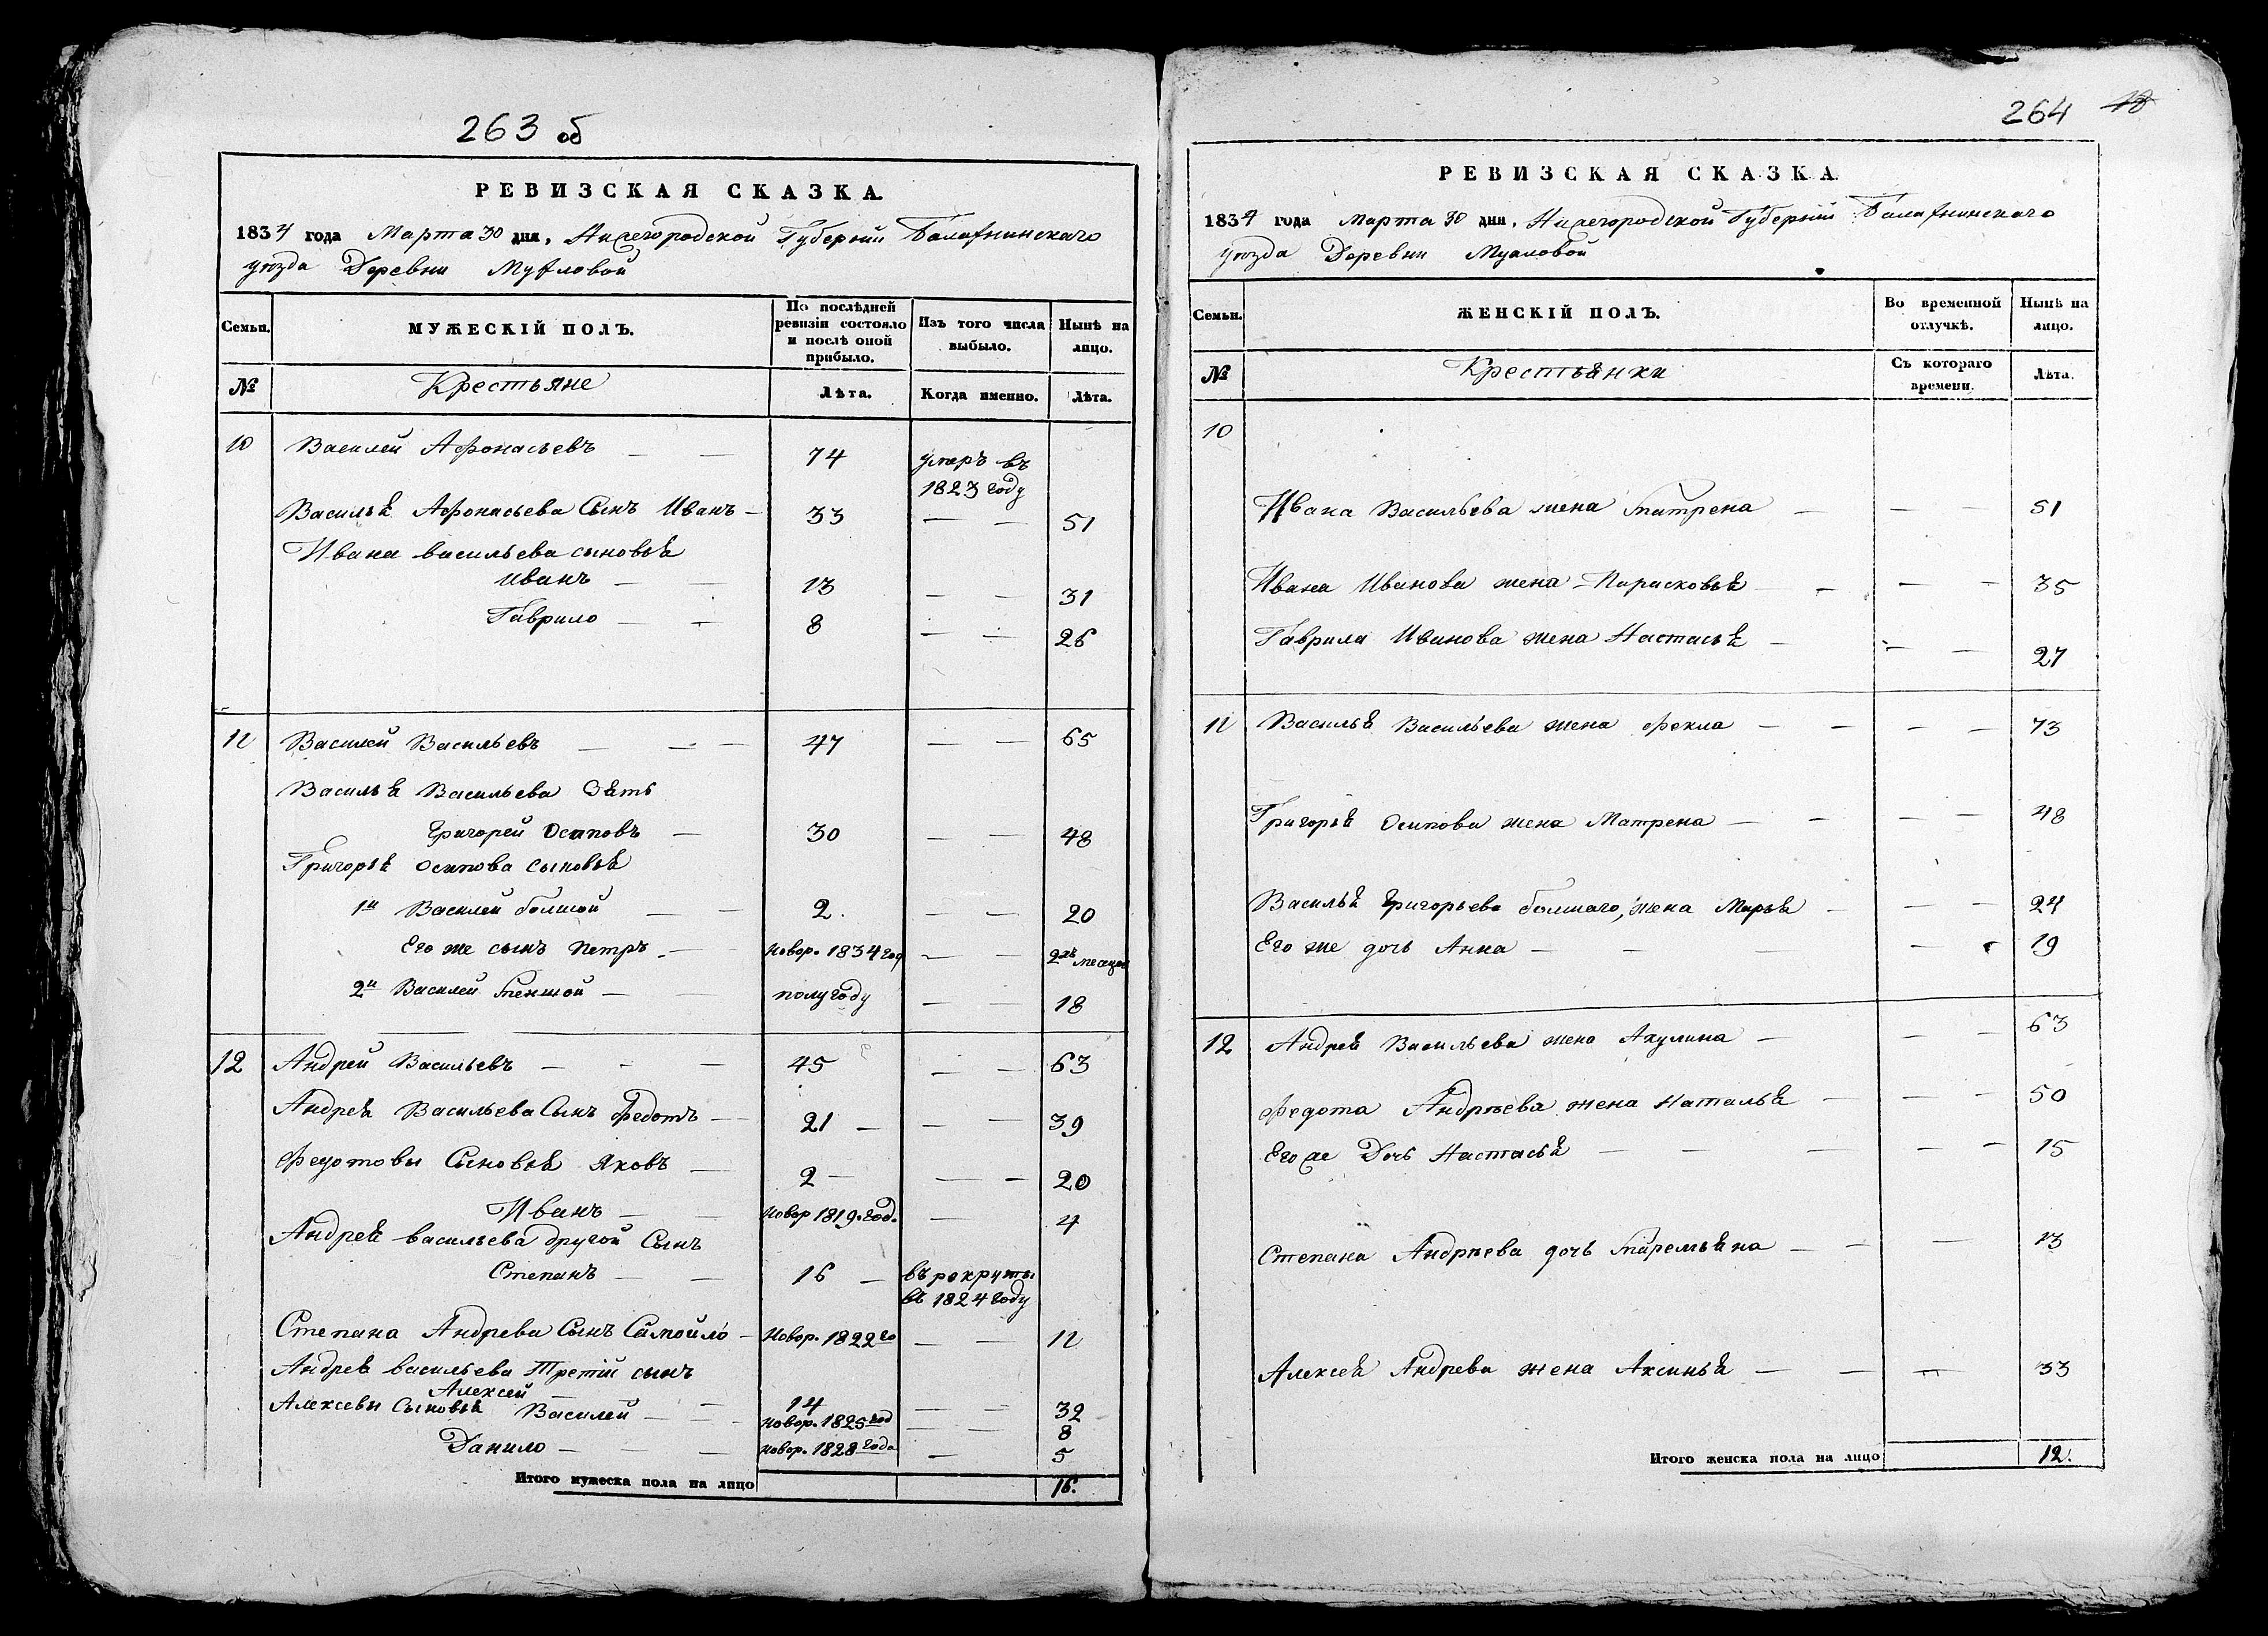 263 об
РЕВИЗСКАЯ СКАЗКА.
1834 года Марта 30 дня, Нижегородской Губернии Балахнинскаго
уѣзда Деревни
Семьи. МУЖЕСКІЙ ПОЛЪ. По послѣдней ревизіи состояло и послѣ оной прибыло. Изъ того числа выбыло. Нынѣ на лицо.
№ Крестьяне Лѣта. Когда именно. Лѣта.
10 Василей Афонасьевъ — — 74 умеръ въ
1823 году
Василья Афонасьева Сынъ Иванъ — 33 — — 51
Ивана васильева сыновья
Иванъ — — 13 — — 31
Гаврило — — 8 — — 26
11 Василей Васильевъ — — — 47 — — 65
Василья Васильева Зять
Григорей Осиповъ — 30 — — 48
Григорья осипова сыновья
1й Василей болшой — — 2. — — 20
Его же сынъ Петръ — — новор. 1834 год — — 2хъ месецов
2й Василей меншой — — полугоду — — 18
12 Андрей Васильевъ — — — 45 — — 63
Андрея Васильева Сынъ Федотъ — 21 — — — 39
Федотовы Сыновья Яковъ — 2 — — — 20
Иванъ — — новор 1819. год. — 4
Андрея васильева другой Сынъ
Степанъ — — 16 — въ рекруты
въ 1824 году
Степана Андрева Сынъ Самойло — Новор. 1822 го — — 12
Андрея васильева Третій сынъ
Алексей — — 14 — — 32
Алексевы Сыновья Василей — — новор. 1825 год — — 8
Данило — — — новор. 1828 года — 5
Итого мужеска пола на лицо 16.
264 18
РЕВИЗСКАЯ СКАЗКА
1834 года Марта 30 дня, Нижегородской Губерніи Балахнинскаго
уѣзда Деревни
Семьи. ЖЕНСКІЙ ПОЛЪ. Во временной отлучкѣ. Нынѣ на лицо.
№ Крестьянки Съ котораго времени. Лѣта.
10
Ивана Васильева жена Матрена — — — 51
Ивана Иванова жена Парасковья — — — — 35
Гаврила Иванова жена Настасья — — — 27
11 Василья Васильева жена Фекла — — — — 73
Григорья Осипова жена Матрена — — — — 48
Василья Григорьева болшаго, жена Марья — — — 24
Его же дочь Анна — — — — 19
12 Андрея Васильева жена Акулина — — — 63
Федота Андрѣева жена Наталья — — — 50
Его же Дочь Настасья — — — — — 15
Степана Андрѣева дочь — — — 13
Алексея Андрева жена Аксинья — — — 33
Итого женска пола на лицо 12.